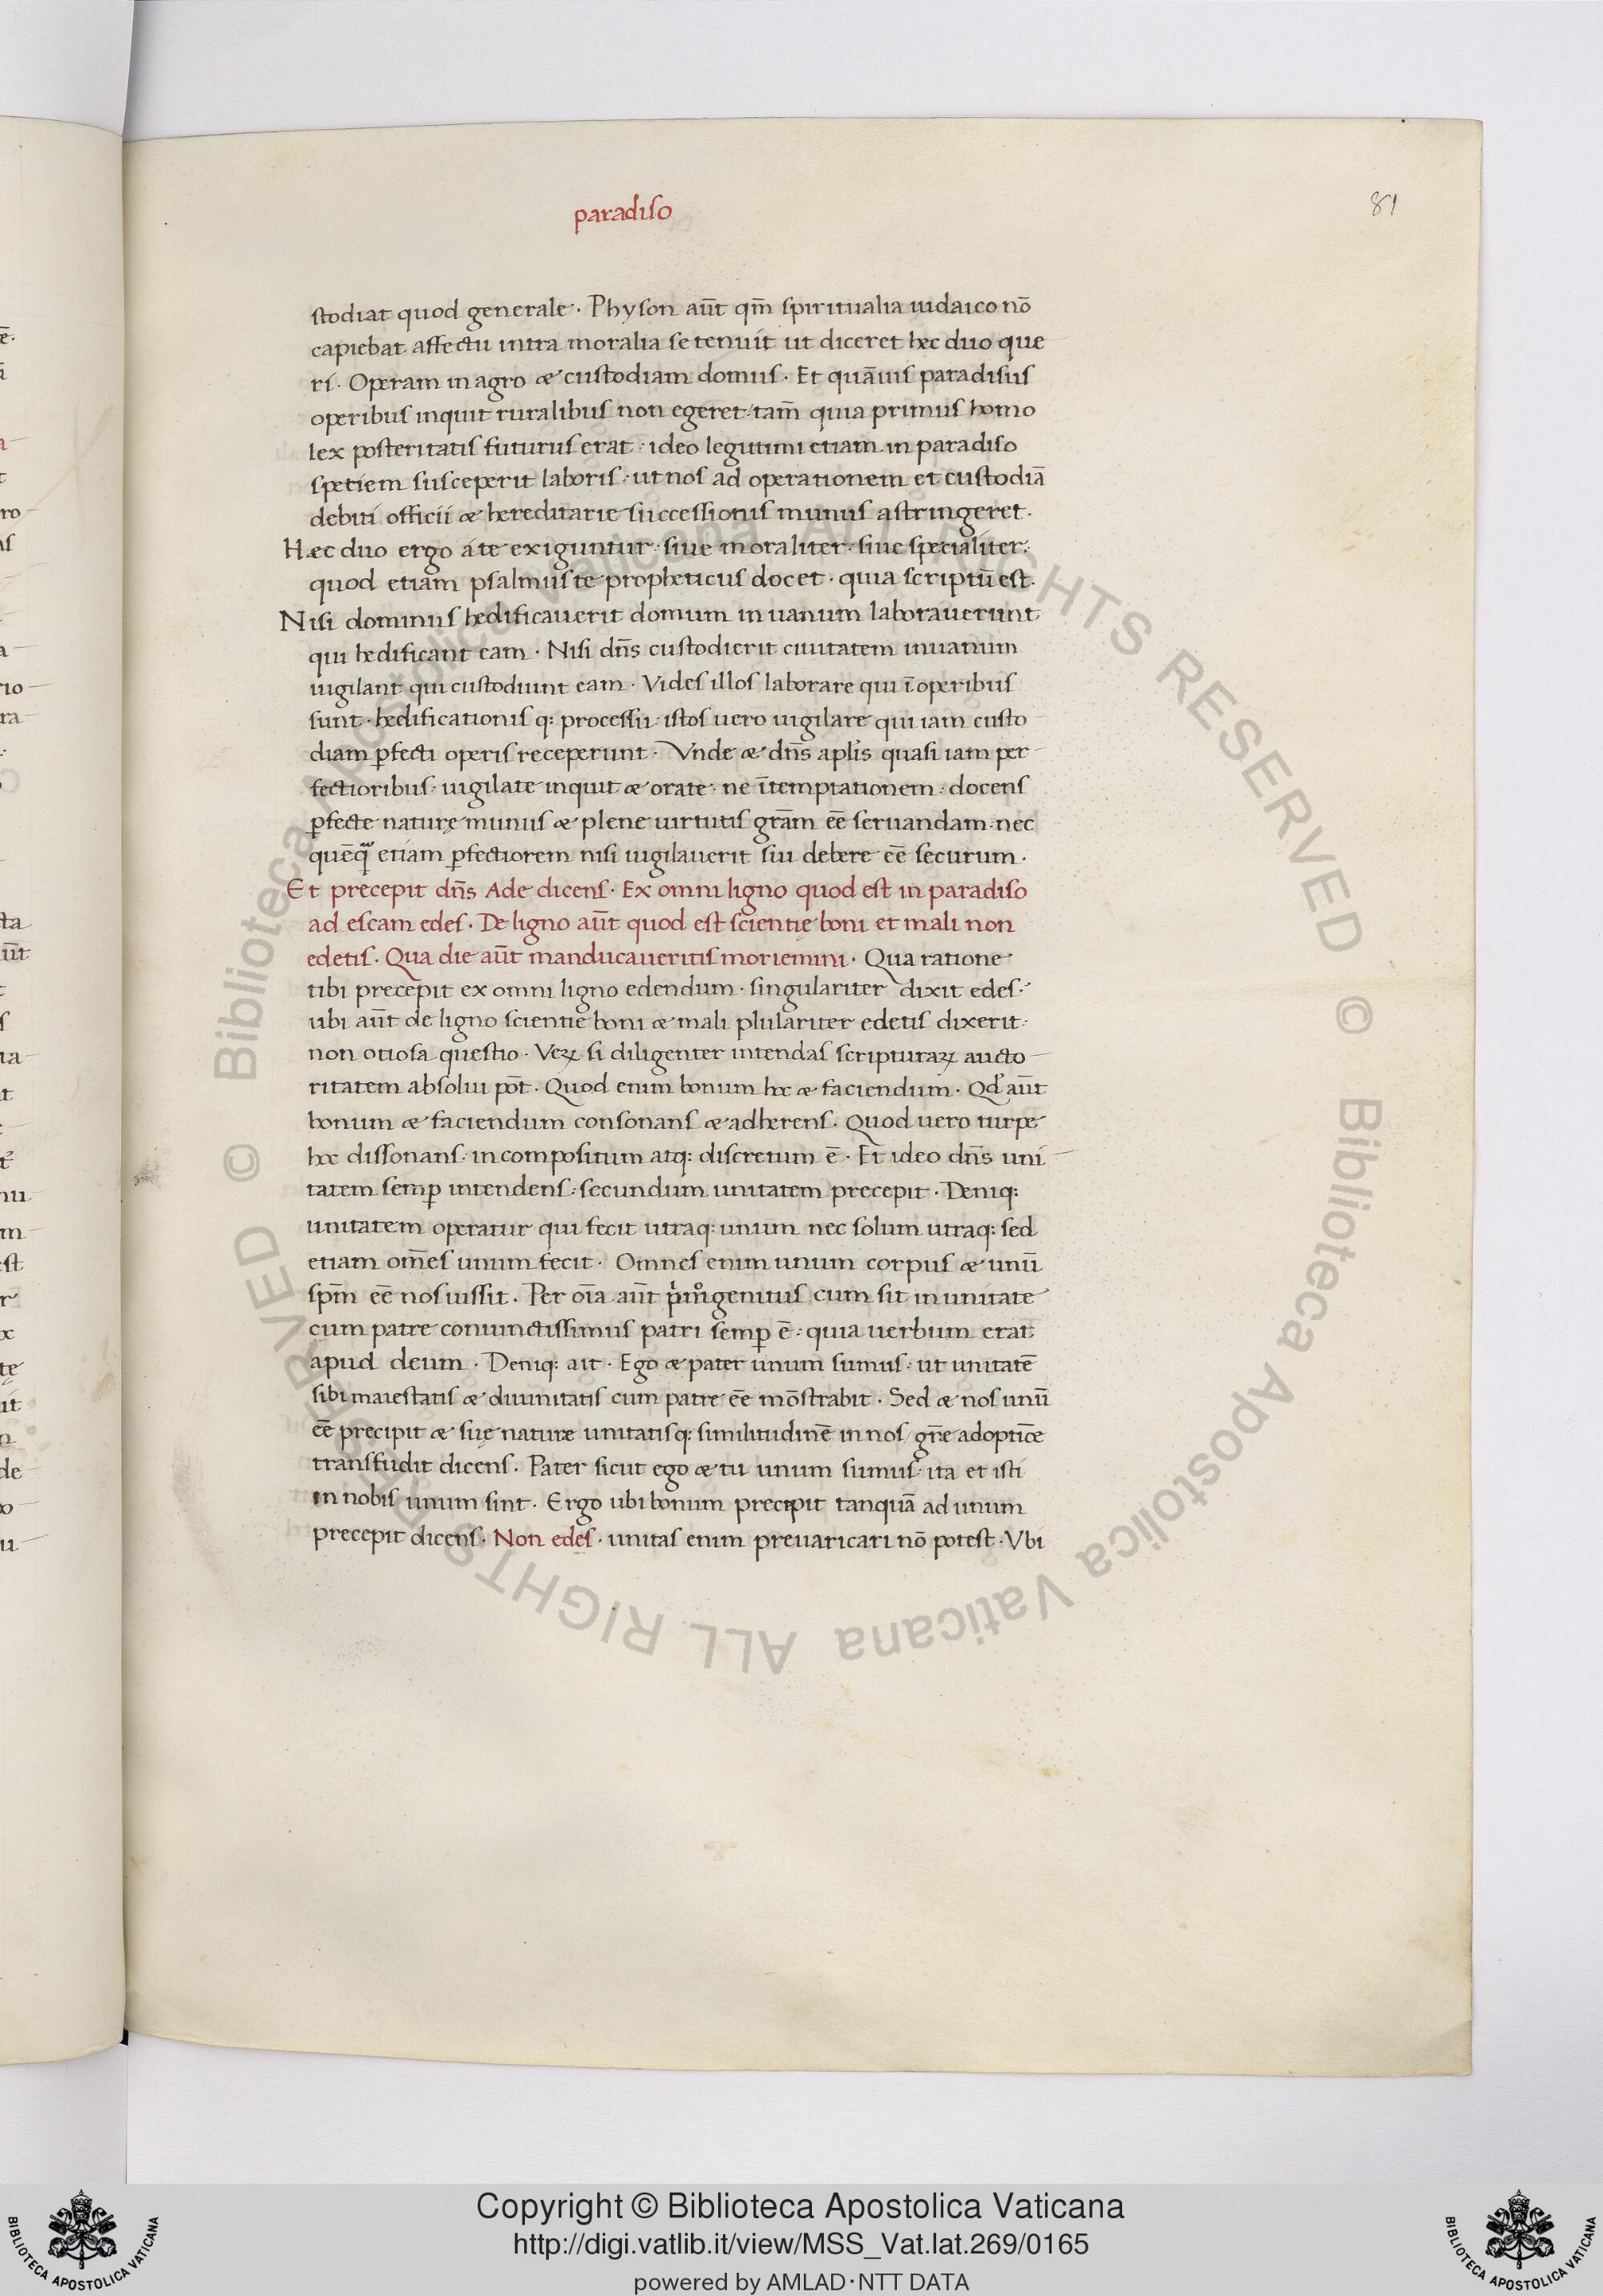 paradiso
81
stodiat quod generale · Physon aūt qm̄ spiritualia iudaico nō
capiebat affectu intra moralia se tenuit ut diceret hec duo que
ri · Operam in agro æ custodiam domus · Et quāuis paradisus
operibus inquit ruralibus non egeret · tam̄ quia primus homo
lex posteritatis futurus erat · ideo legitimi etiam in paradiso
spetiem susceperit laboris · ut nos ad operationem et custodiā
debiti officii æ hereditarie successionis munus astringeret ·
Hæc duo ergo áte exiguntur · siue moraliter · siue specialiter ·
quod etiam psalmus te propheticus docet · quia scriptū est ·
Nisi dominus hedificauerit domum in uanum laborauerunt
qui hedificant eam · Nisi dn̄s custodierit ciuitatem inuanum
uigilant qui custodiunt eam · Vides illos laborare qui ī operibus
sunt · hedificationis q: processu · istos uero uigilare qui iam custo
diam ꝑfecti operis receperunt · Vnde æ dn̄s apl̄is quasi iam per
fectioribus · uigilate inquit æ orate · ne ītemptationem · docens
ꝑfecte naturę munus æ plene uirtutis grām eē seruandam · nec
quēq̄ etiam ꝑfectiorem nisi uigilauerit sui debere eē securum ·
Et precepit dn̄s Ade dicens · Ex omni ligno quod est in paradiso
ad escam edes · De ligno aūt quod est scientię boni et mali non
edetis · Qua die aūt manducaueritis moriemini · Qua ratione
tibi precepit ex omni ligno edendum · singulariter dixit edes ·
ubi aūt de ligno scientie boni æ mali plulariter edetis dixerit ·
non otiosa questio · Veꝝ si diligenter intendas scripturaꝝ aucto
ritatem absolui pōt · Quod enim bonum hoc æ faciendum · Qd' aūt
bonum æ faciendum consonans æ adherens · Quod uero turpe
hoc dissonans · incompositum atq: discretum ē · Et ideo dn̄s uni
tatem semꝑ intendens · secundum unitatem precepit · Deniq:
unitatem operatur qui fecit utraq: unum nec solum utraq: sed
etiam om̄es unum fecit · Omnes enim unum corpus æ unū
spm̄ eē nos iussit · Per oīa aūt pimogenitus cum sit in unitate
cum patre coniunctissimus patri semꝑ ē · quia uerbum erat
apud deum · Deniq: ait · Ego æ pater unum sumus · ut unitatē
sibi maiestatis æ diuinitatis cum patre eē mōstrabit · Sed æ nos unū
eē precipit æ suę nature unitatisq: similitudinē in nos / gr̄e adoptiōe
transfudit dicens · Pater sicut ego æ tu unum sumus · ita et isti
in nobis unum sint · Ergo ubi bonum precipit tanquā ad unum
precepit dicens · Non edes · unitas enim preuaricari nō potest · Vbi
© Biblioteca Apostolica Vaticana ALL RIGHTS RESERVED © Biblioteca Apostolica Vaticana ALL RIGHTS RESERVED
Copyright © Biblioteca Apostolica Vaticana
http://digi.vatlib.it/view/MSS_Vat.lat.269/0165
powered by AMLAD·NTT DATA
BIBLIOTECA APOSTOLICA VATICANA
BIBLIOTECA APOSTOLICA VATICANA